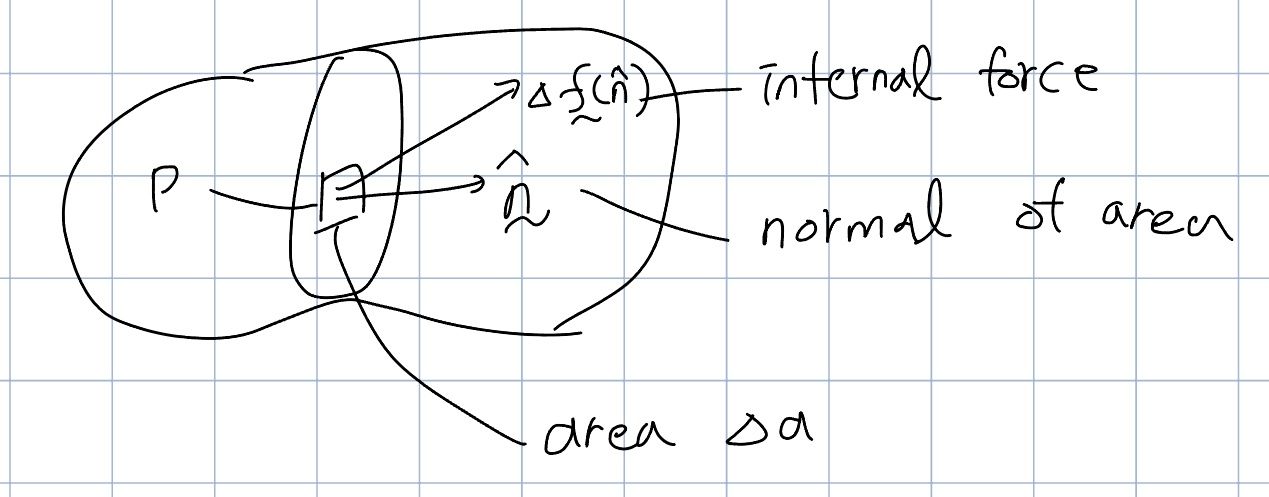 Δf(n̂) internal force
P n̂ normal of area
area Δa